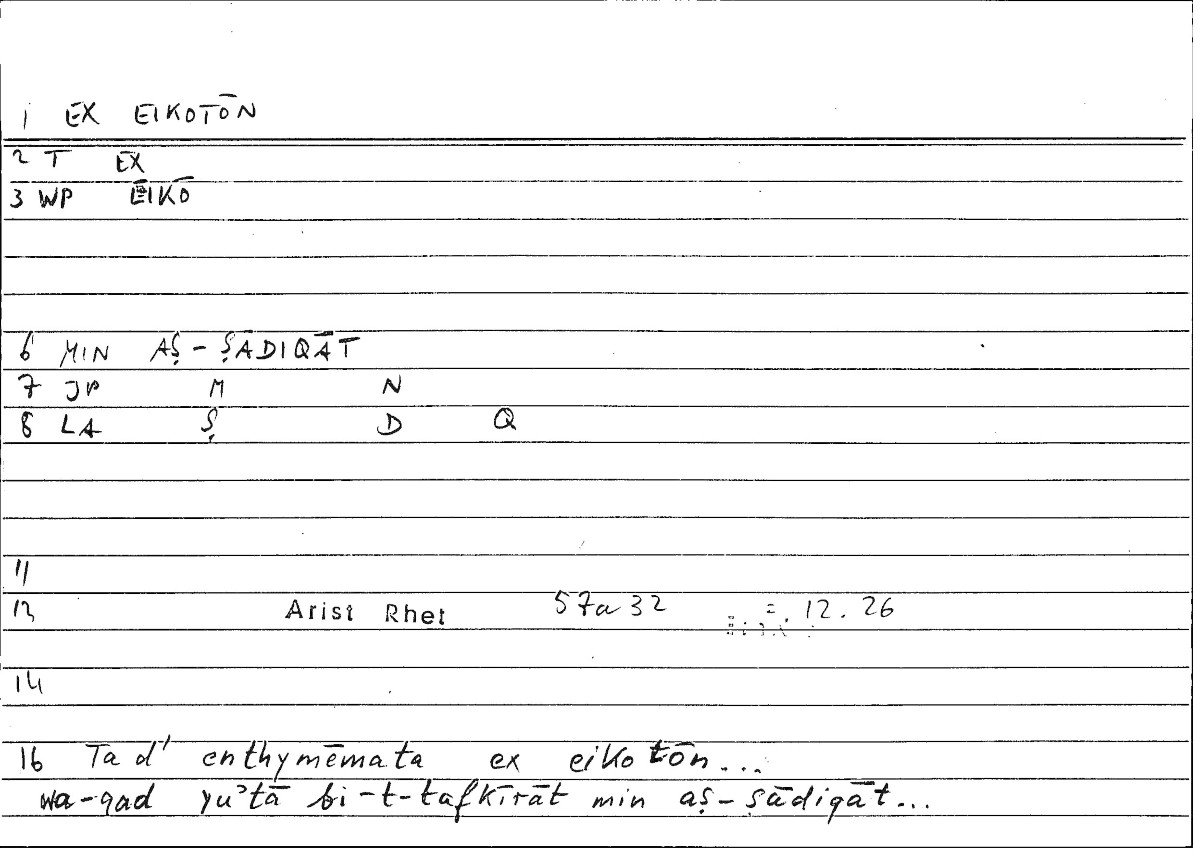 1 EX EIKOTŌN
2 T EX
3 WP EIKŌ
6 MIN AṢ-ṢĀDIQĀT
7 JP M N
8 LA Ṣ D Q
11
13 Arist Rhet 57a32 12.26
14
16 Ta d' enthymēmata ex eikotōn...
wa-qad yuʾtā bi-t-tafkīrāt min aṣ-ṣādiqāt...